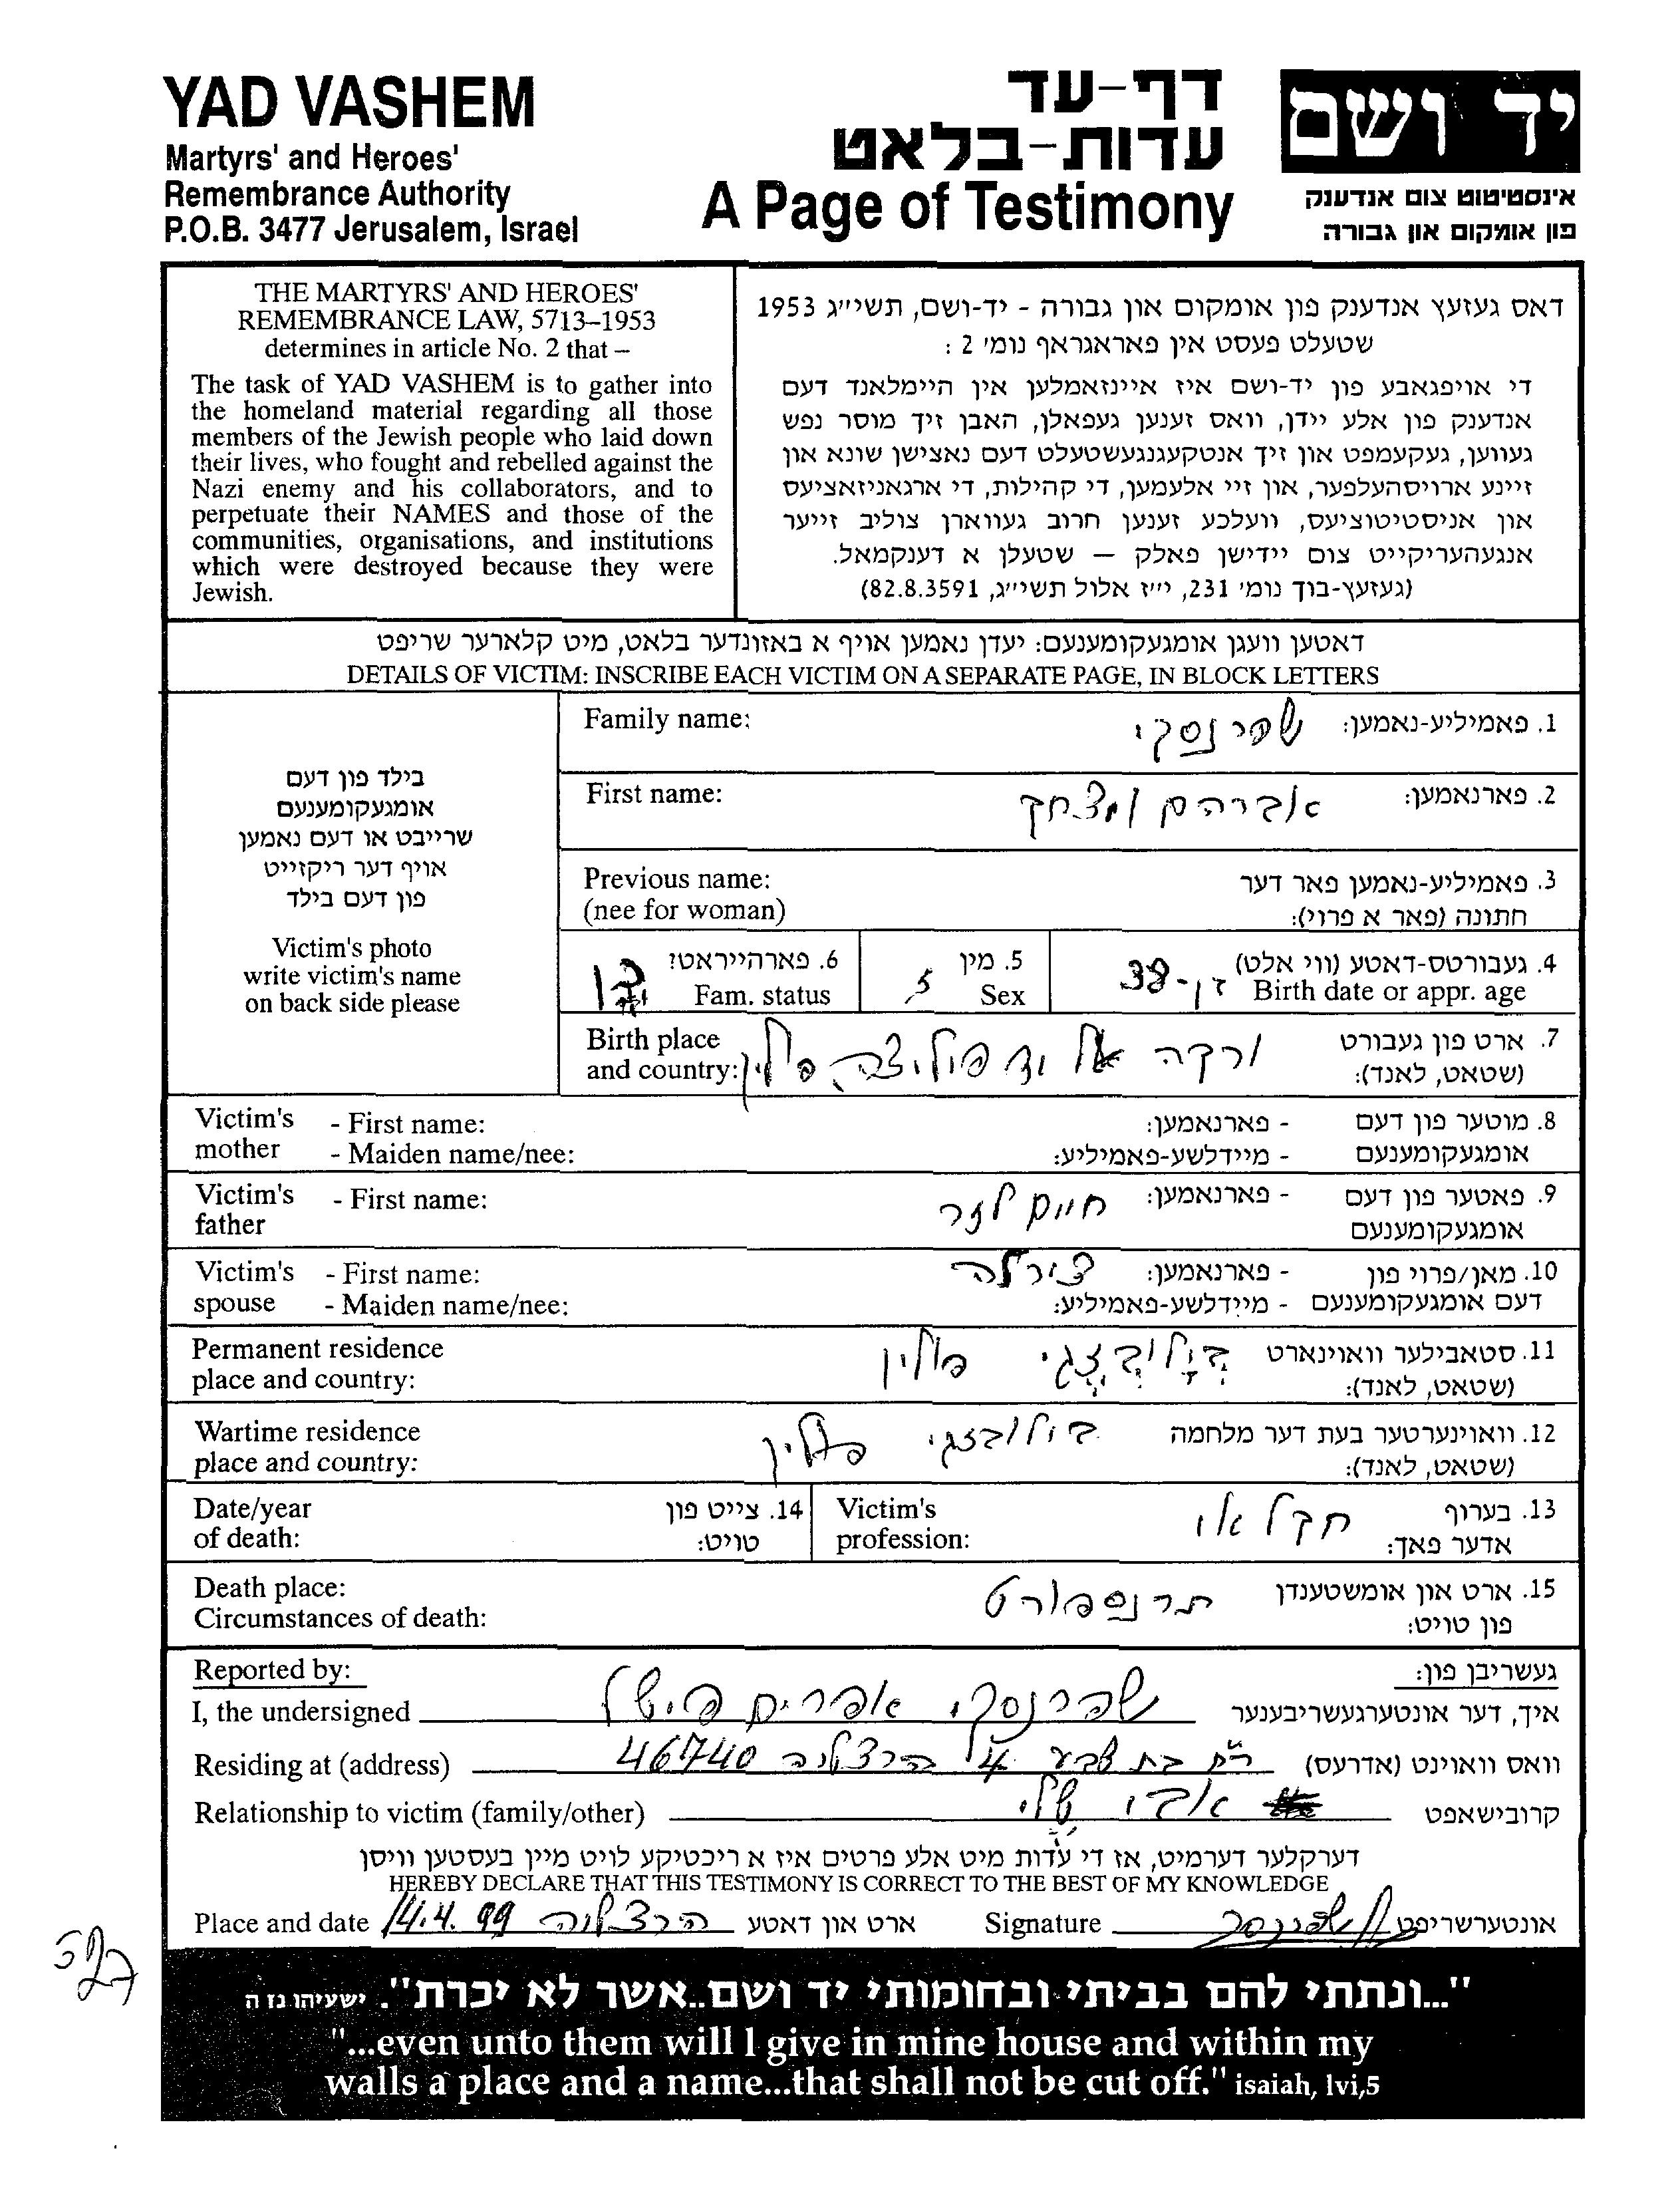 YAD VASHEM
Martyrs' and Heroes'
Remembrance Authority
P.O.B. 3477 Jerusalem, Israel
דף-עד
עדות-בלאט
A Page of Testimony
יד ושם
אינסטיטוט צום אנדענק
פון אומקום און גבורה
THE MARTYRS' AND HEROES'
REMEMBRANCE LAW, 5713–1953
determines in article No. 2 that –
The task of YAD VASHEM is to gather into
the homeland material regarding all those
members of the Jewish people who laid down
their lives, who fought and rebelled against the
Nazi enemy and his collaborators, and to
perpetuate their NAMES and those of the
communities, organisations, and institutions
which were destroyed because they were
Jewish.
דאס געזעץ אנדענק פון אומקום און גבורה - יד-ושם, תשי״ג 1953
שטעלט פעסט אין פאראגראף נומ׳ 2 :
די אויפגאבע פון יד-ושם איז איינזאמלען אין היימלאנד דעם
אנדענק פון אלע יידן, וואס זענען געפאלן, האבן זיך מוסר נפש
געווען, געקעמפט און זיך אנטקעגנגעשטעלט דעם נאצישן שונא און
זיינע ארויסהעלפער, און זיי אלעמען, די קהילות, די ארגאניזאציעס
און אניסטיטוציעס, וועלכע זענען חרוב געווארן צוליב זייער
אנגעהעריקייט צום יידישן פאלק — שטעלן א דענקמאל.
(געזעץ-בוך נומ׳ 231, י״ז אלול תשי״ג, 82.8.3591)
דאטען וועגן אומגעקומענעם: יעדן נאמען אויף א באזונדער בלאט, מיט קלארער שריפט
DETAILS OF VICTIM: INSCRIBE EACH VICTIM ON A SEPARATE PAGE, IN BLOCK LETTERS
בילד פון דעם
אומגעקומענעם
שרייבט או דעם נאמען
אויף דער ריקזייט
פון דעם בילד
Victim's photo
write victim's name
on back side please
Family name: שפרנסקי 1. פאמיליע-נאמען:
First name: אברהם יצחק 2. פארנאמען:
Previous name: 3. פאמיליע-נאמען פאר דער
(nee for woman) חתונה (פאר א פרוי):
4. געבורטס-דאטע (ווי אלט)
Birth date or appr. age 38
5. מין
Sex ז
6. פארהייראט?
Fam. status
Birth place 7. ארט פון געבורט
and country: ורקה פולין (שטאט, לאנד):
Victim's - First name: - פארנאמען: 8. מוטער פון דעם
mother - Maiden name/nee: - מיידלשע-פאמיליע: אומגעקומענעם
Victim's - First name: חיים לזר - פארנאמען: 9. פאטער פון דעם
father אומגעקומענעם
Victim's - First name: צירלה - פארנאמען: 10. מאן/פרוי פון
spouse - Maiden name/nee: - מיידלשע-פאמיליע: דעם אומגעקומענעם
Permanent residence בולובצגי פולין 11. סטאבילער וואוינארט
place and country: (שטאט, לאנד):
Wartime residence בולובצגי פולין 12. וואוינערטער בעת דער מלחמה
place and country: (שטאט, לאנד):
Date/year 14. צייט פון
of death: טויט:
Victim's חקלאי 13. בערוף
profession: אדער פאך:
Death place: תרנספורט 15. ארט און אומשטענדן
Circumstances of death: פון טויט:
Reported by: געשריבן פון:
I, the undersigned שפרנסקי אפרים פישל איך, דער אונטערגעשריבענער
Residing at (address) רח בת שבע 4 הרצליה 46740 וואס וואוינט (אדרעס)
Relationship to victim (family/other) אבי שלי קרובישאפט
דערקלער דערמיט, אז די עדות מיט אלע פרטים איז א ריכטיקע לויט מיין בעסטען וויסן
HEREBY DECLARE THAT THIS TESTIMONY IS CORRECT TO THE BEST OF MY KNOWLEDGE
Place and date 14.4.99 הרצליה ארט און דאטע Signature אונטערשריפט
"...ונתתי להם בביתי ובחומותי יד ושם..אשר לא יכרת". ישעיהו נז ה
"...even unto them will I give in mine house and within my
walls a place and a name...that shall not be cut off." isaiah, lvi,5